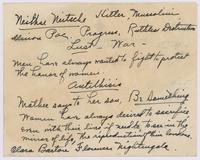 Neithe Nietsche Hitler Mussolini
Progress, Ruthless Destruction
Lust - War -
Men have always wanted to fight to protect
the honor of women.
Antithisis
Mother says to her son, Be Something
Women have always desired to sacrifice
even with their lives if need be
Clara Barton Florence Nightingale.